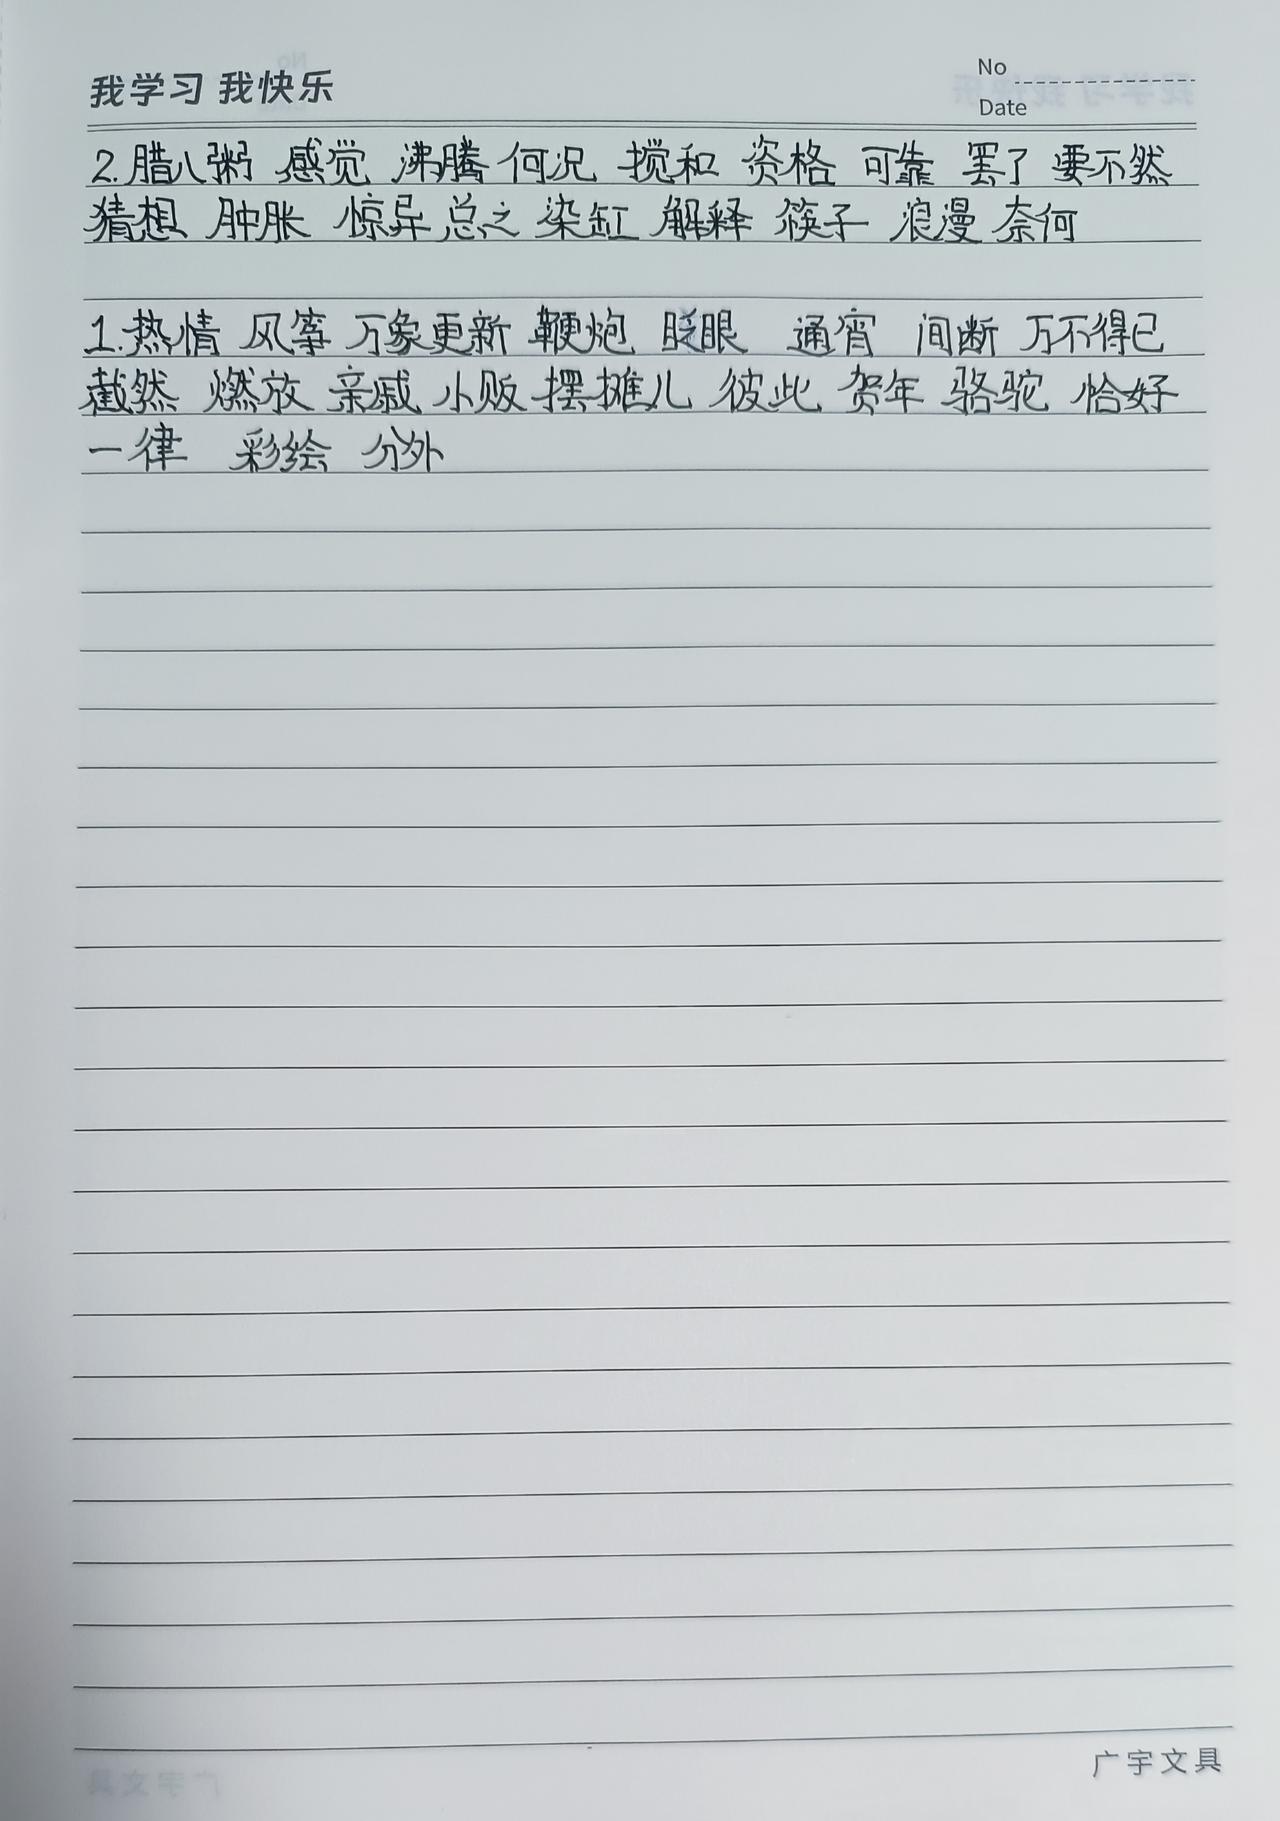 我学习 我快乐
No
Date
2.腊八粥 感觉 沸腾 何况 搅和 资格 可靠 罢了 要不然
猜想 肿胀 惊异 总之 染缸 解释 筷子 浪漫 奈何
1.热情 风筝 万象更新 鞭炮 眨眼 通宵 间断 万不得已
截然 燃放 亲戚 小贩 摆摊儿 彼此 贺年 骆驼 恰好
一律 彩绘 分外
广宇文具